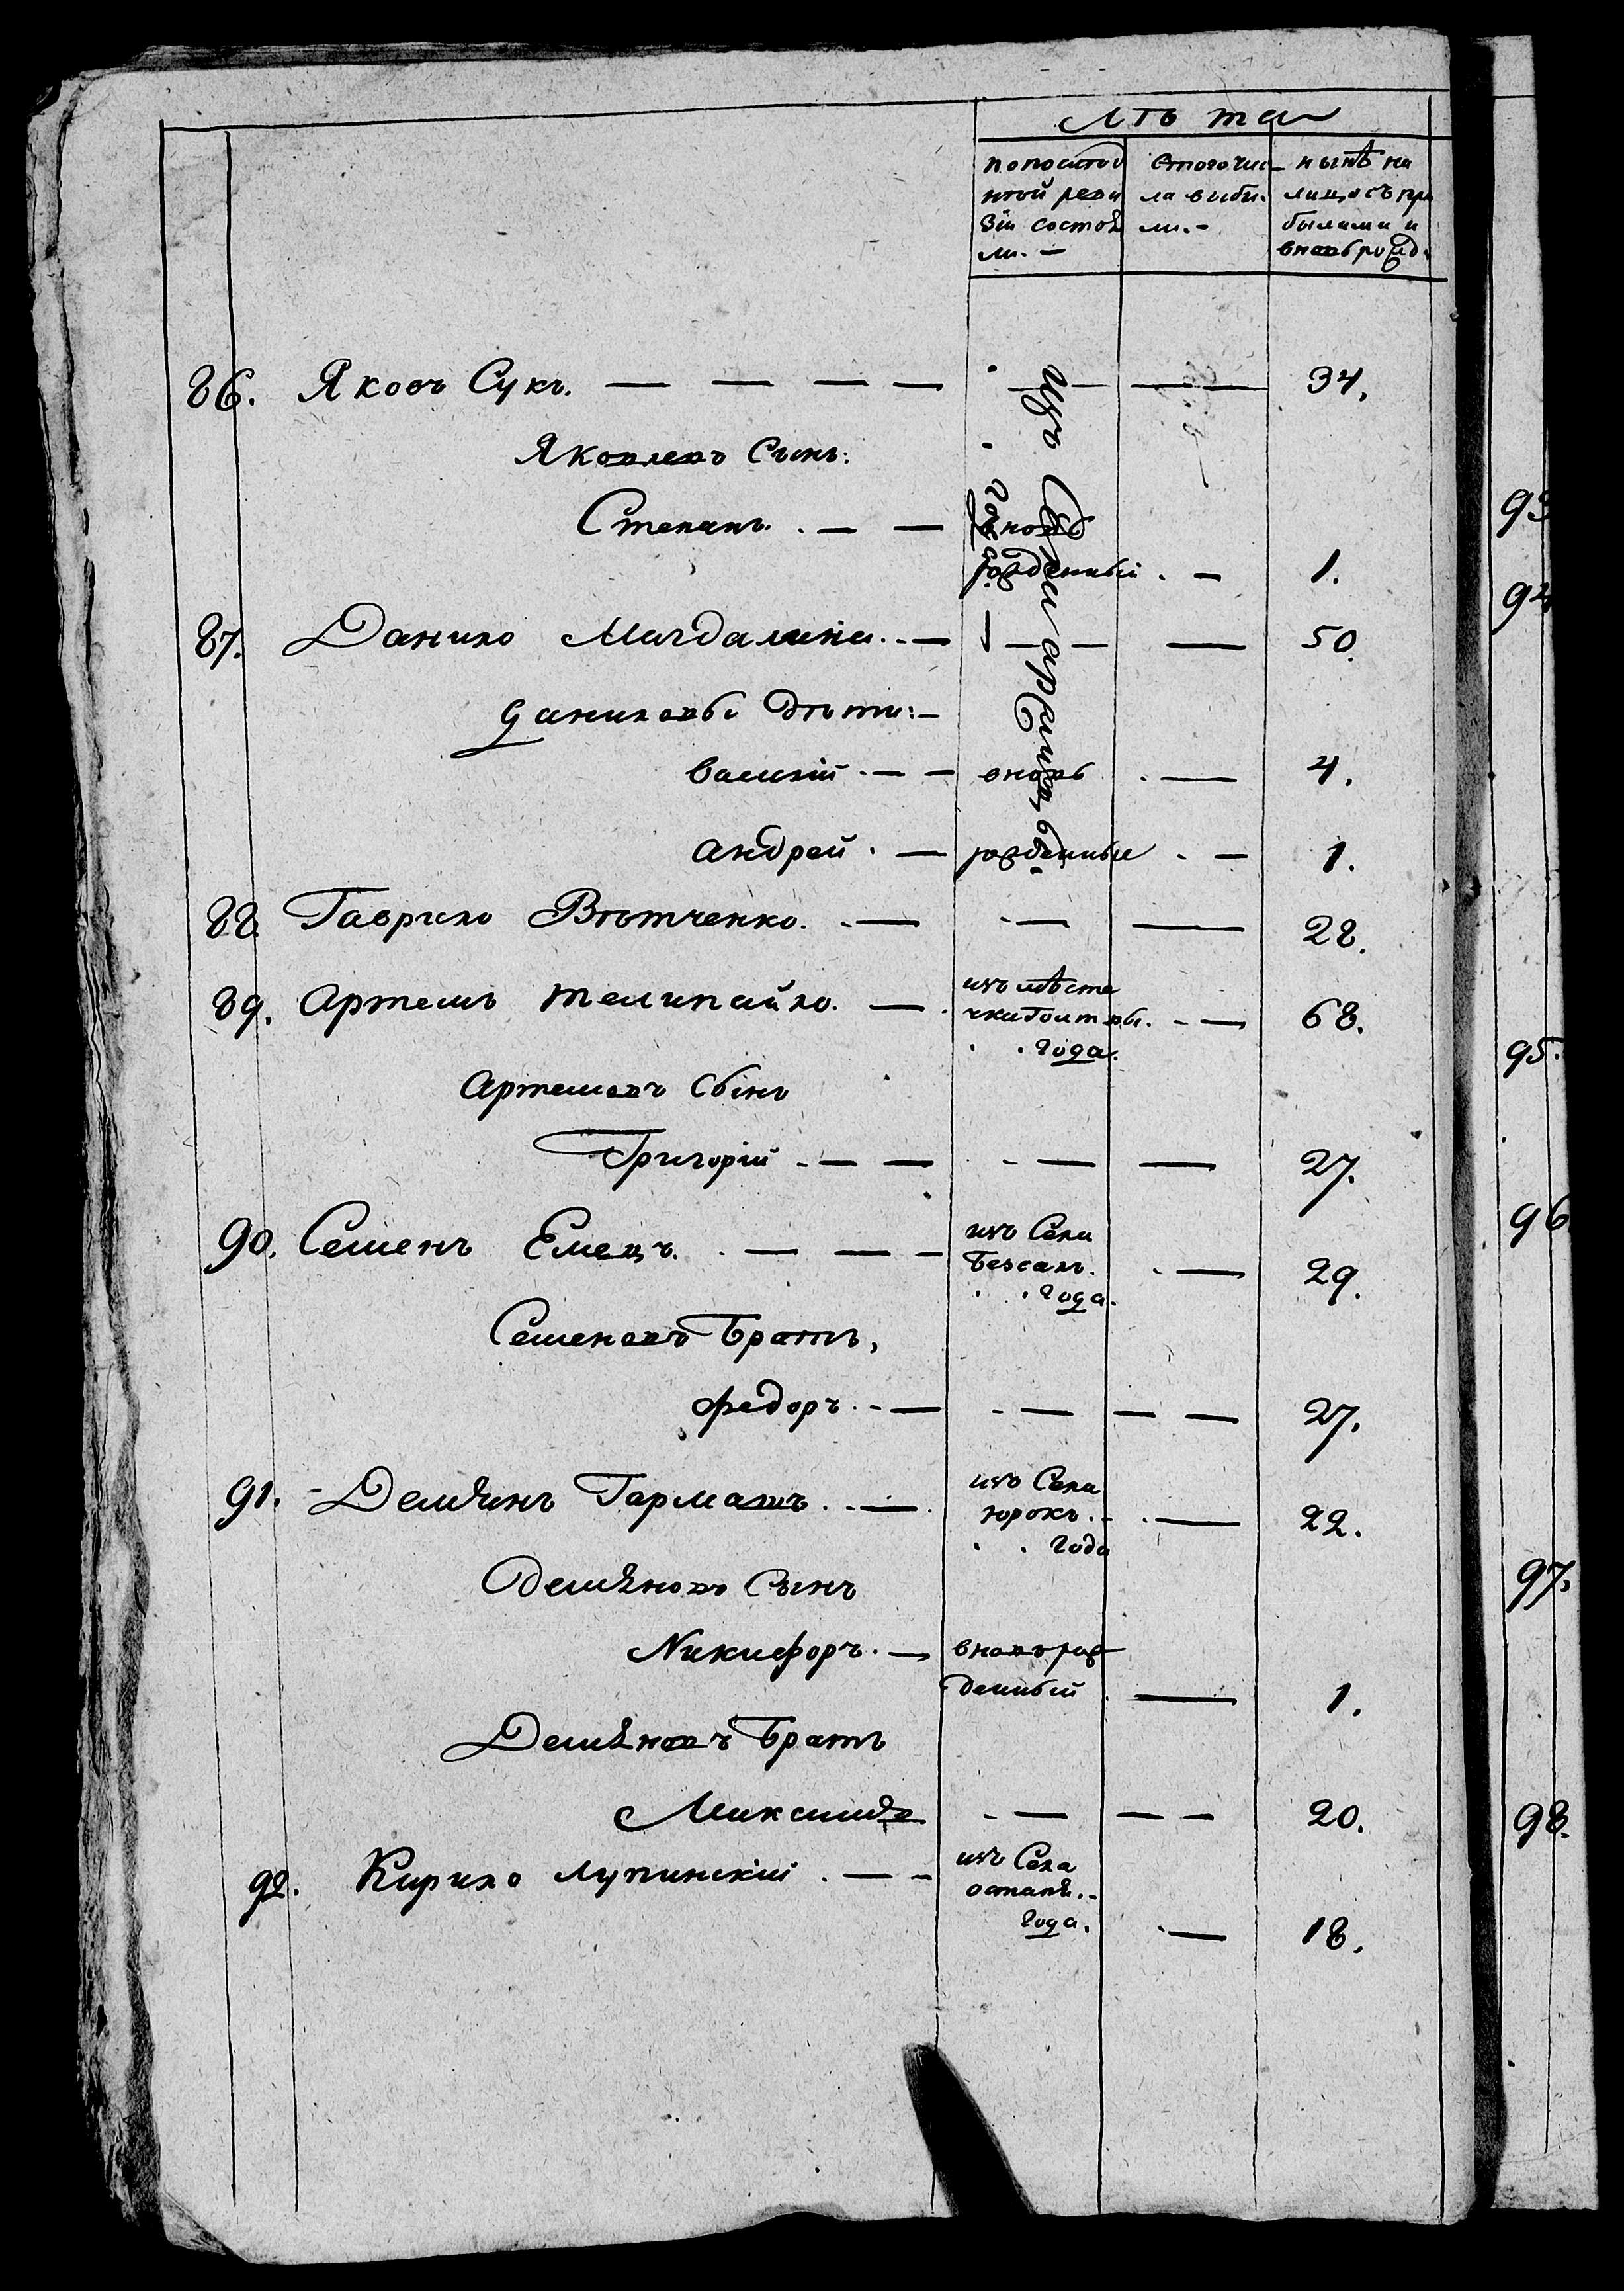 Лѣта
попослѣд
ней реви
зіи состоя
ли. —
Стогочис-
ла выбы-
ли. —
нынѣ на
лицо съ при
былыми и
вновь рожд.
86. Яковъ Сукъ. — — — — — 34.
Яковлевъ Сынъ:
Степанъ. — — вновь
рожденный. — 1.
Изъ Села
года.
87. Данило Магдалина. — — — 50.
Даниловы дѣти: —
Василій. — — вновь — 4.
Андрей. — рожденные — 1.
88. Гаврило Вѣтченко. — — — 28.
89. Артемъ Телипайло. — изъ мѣсте
чка — 68.
года.
Артемовъ Сынъ
Григорій — — — — 27.
90. Семенъ Емецъ. — — — изъ Села
Безсал. — 29.
года.
Семеновъ Братъ,
Федоръ. — — — — 27.
91. Демянъ Гармашъ. — изъ Села
юрокъ. — 22.
года
Демяновъ Сынъ
Никифоръ. — вновь рож
денный — 1.
Демяновъ Братъ
Максимъ — — — 20.
92. Кирило Лупинскій. — — изъ Села
остапя. —
года. — 18.
93
94
95.
96
97.
98.